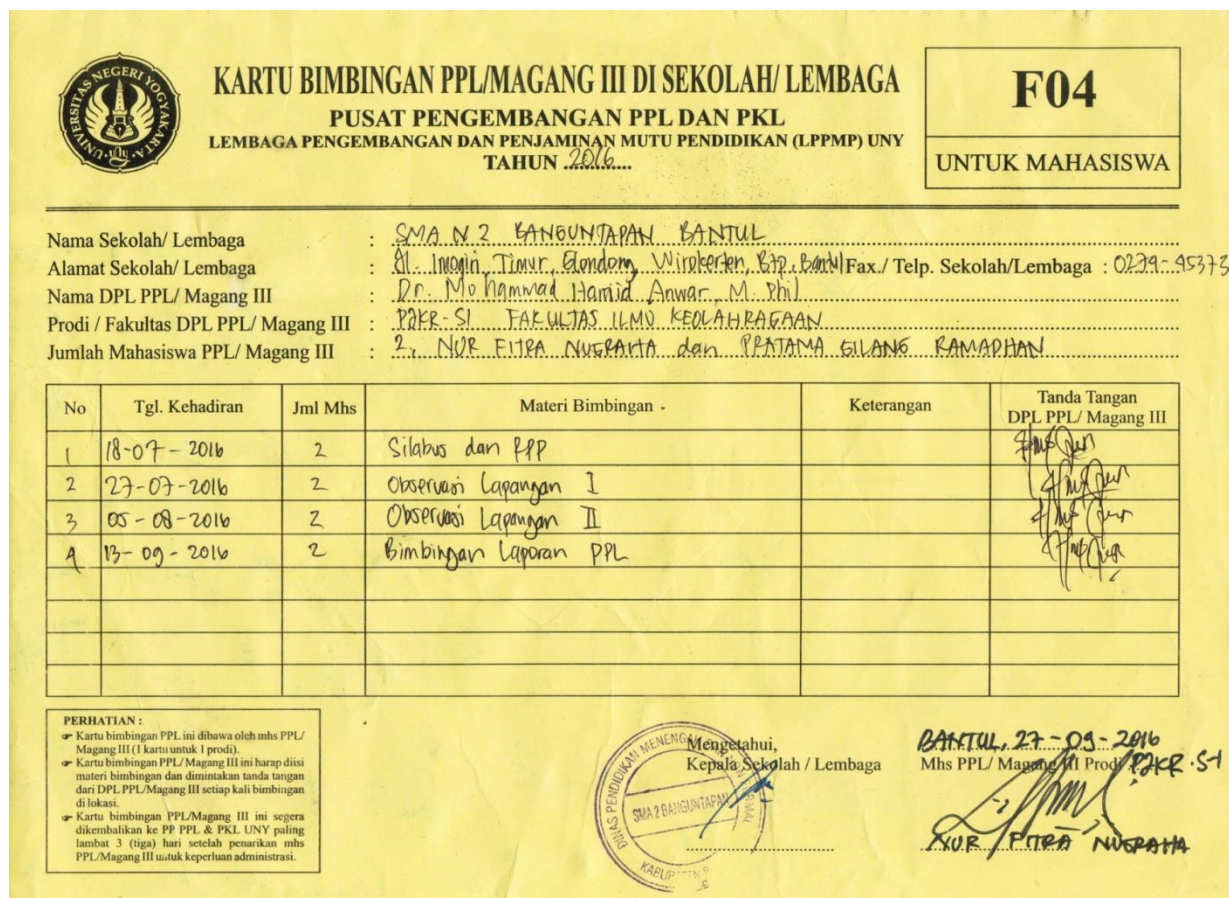 UNIVERSITAS NEGERI YOGYAKARTA
UNY
KARTU BIMBINGAN PPL/MAGANG III DI SEKOLAH/ LEMBAGA
PUSAT PENGEMBANGAN PPL DAN PKL
LEMBAGA PENGEMBANGAN DAN PENJAMINAN MUTU PENDIDIKAN (LPPMP) UNY
TAHUN 2016
F04
UNTUK MAHASISWA
Nama Sekolah/ Lembaga : SMA N 2 BANGUNTAPAN BANTUL
Alamat Sekolah/ Lembaga : Jl. Imogiri Timur, Glondong, Wirokerten, Btp, Bantul Fax./ Telp. Sekolah/Lembaga : 0274-45373
Nama DPL PPL/ Magang III : Dr. Mohammad Hamid Anwar, M. Phil
Prodi / Fakultas DPL PPL/ Magang III : PJKR-S1 FAKULTAS ILMU KEOLAHRAGAAN
Jumlah Mahasiswa PPL/ Magang III : 2, NUR FITRA NUGRAHA dan PRATAMA GILANG RAMADHAN
No Tgl. Kehadiran Jml Mhs Materi Bimbingan Keterangan Tanda Tangan DPL PPL/ Magang III
1 18-07-2016 2 Silabus dan RPP
2 27-07-2016 2 Observasi Lapangan I
3 05-08-2016 2 Observasi Lapangan II
4 13-09-2016 2 Bimbingan Laporan PPL
PERHATIAN :
Kartu bimbingan PPL ini dibawa oleh mhs PPL/
Magang III (1 kartu untuk 1 prodi).
Kartu bimbingan PPL/ Magang III ini harap diisi
materi bimbingan dan dimintakan tanda tangan
dari DPL PPL/Magang III setiap kali bimbingan
di lokasi.
Kartu bimbingan PPL/Magang III ini segera
dikembalikan ke PP PPL & PKL UNY paling
lambat 3 (tiga) hari setelah penarikan mhs
PPL/Magang III untuk keperluan administrasi.
Mengetahui,
Kepala Sekolah / Lembaga
DINAS PENDIDIKAN MENENGAH
SMA 2 BANGUNTAPAN
BANTUL, 27-09-2016
Mhs PPL/ Magang III Prodi PJKR-S1
NUR FITRA NUGRAHA